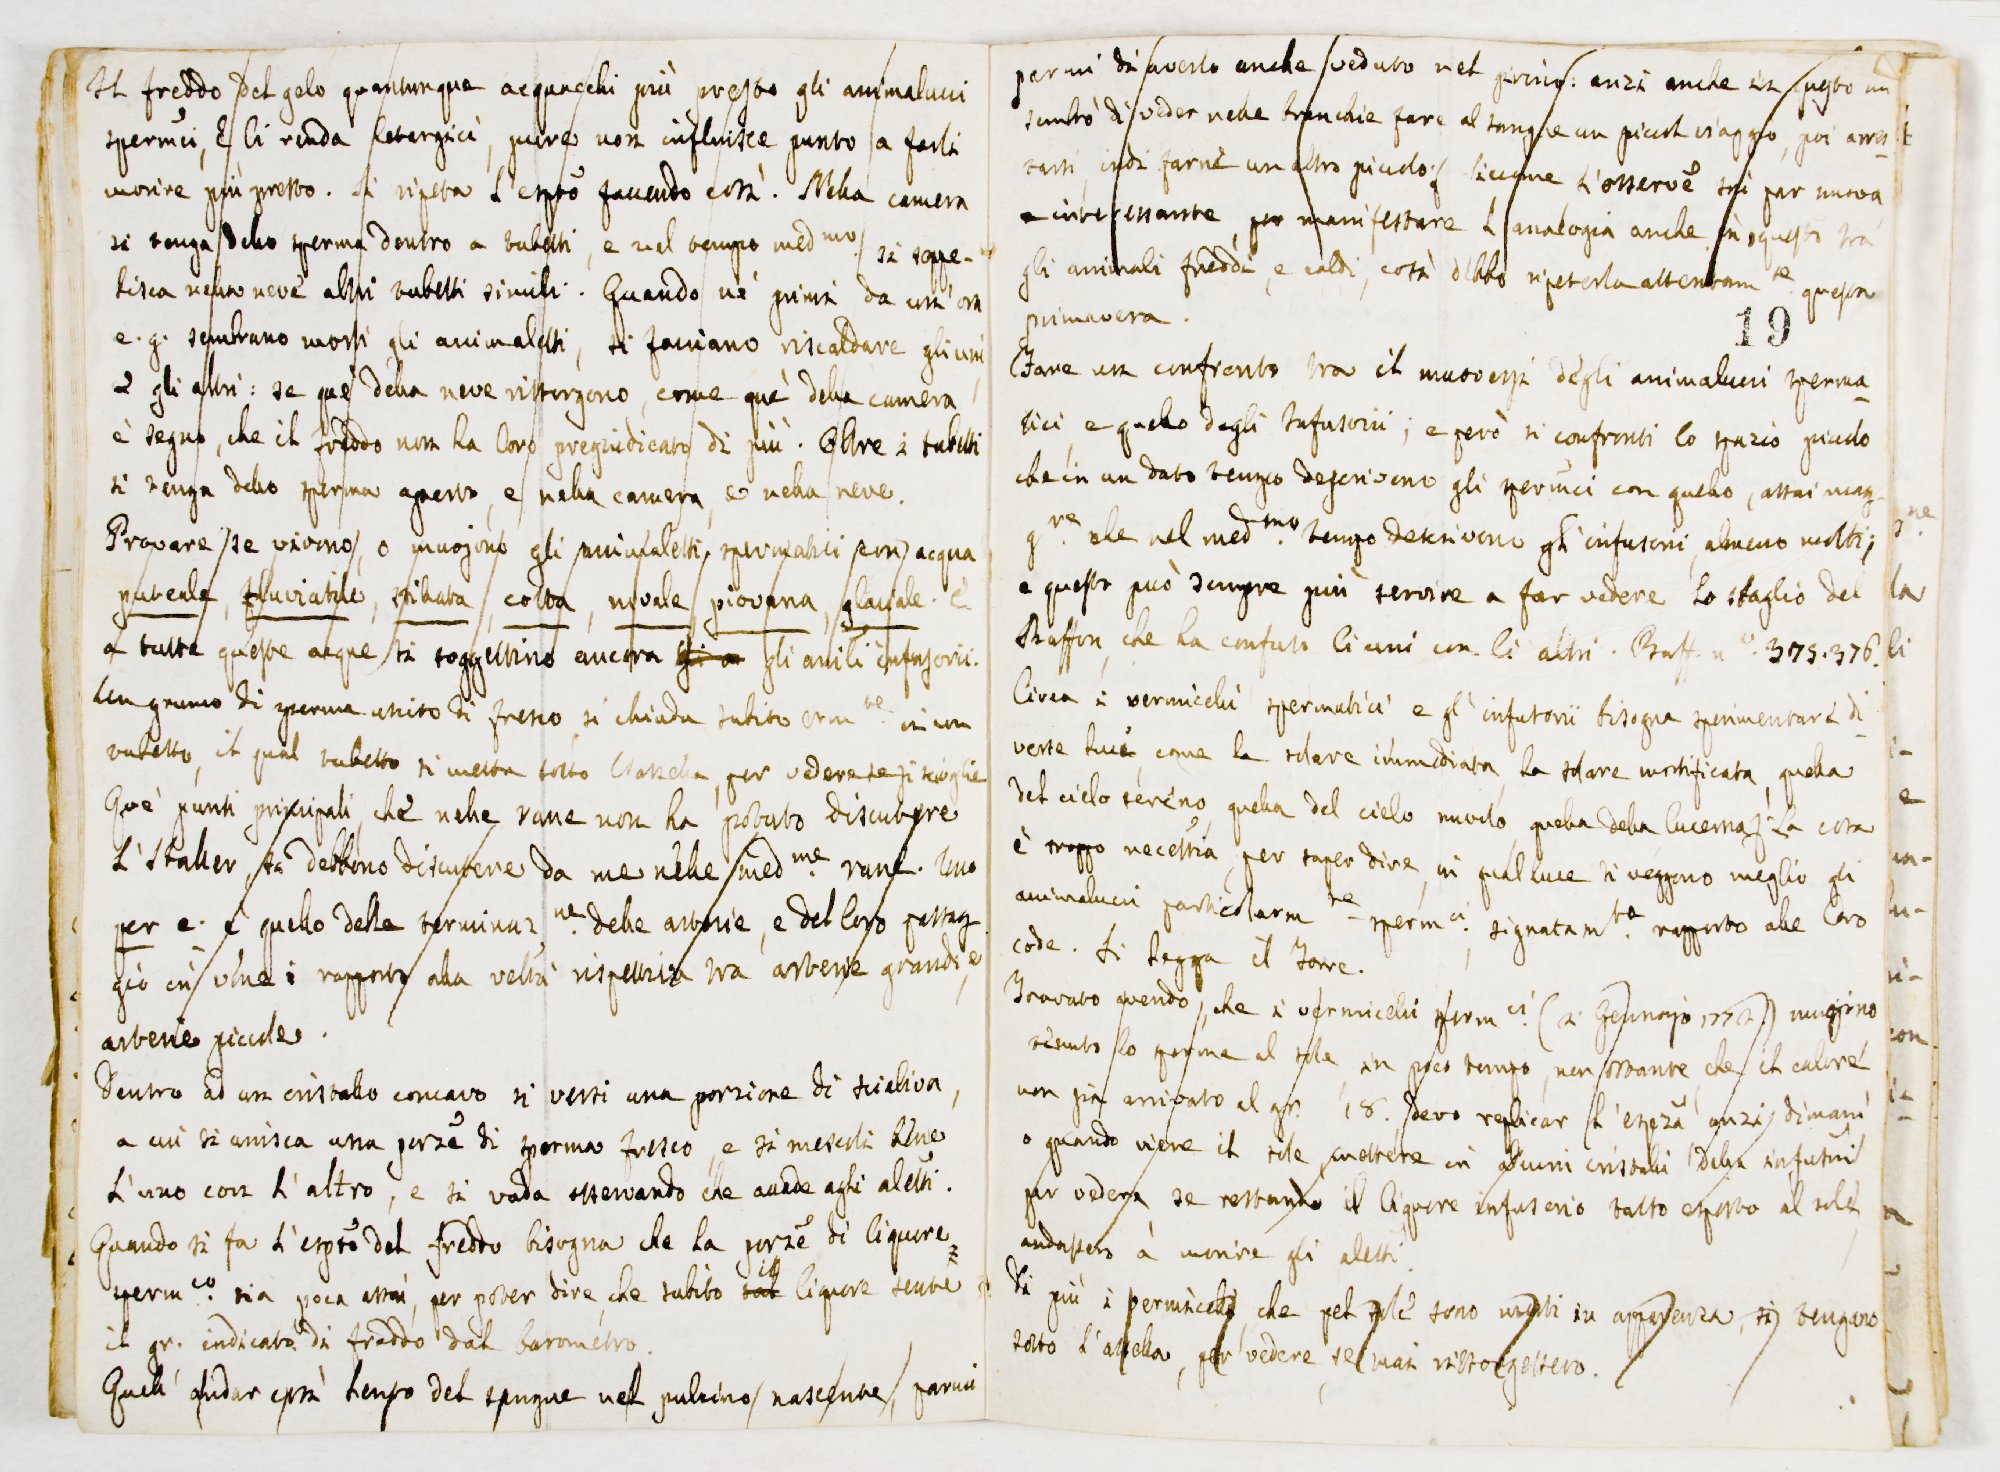 Il freddo del gelo quantunque acquacchi più presto gli animalucci
spermci, e li renda letargici, pure non influisce punto a farli
morire più presto. Si ripeta l'esptõ facendo così. Nella camera
si tenga dello sperma dentro a tubetti, e nel tempo medmo. si seppe-
lisca nella neve altri tubetti simili. Quando ne' primi da un'ora
e. g. sembrano morti gli animaletti, si facciano riscaldare gli uni
e gli altri: se que' della neve rissorgono, come que' della camera,
è segno, che il freddo non ha loro pregiudicato di più. Oltre i tubetti
si tenga dello sperma aperto, e nella camera, e nella neve.
Provare se vivono, o muojono gli animaletti spermatici con acqua
puteale, fluviatile, stillata, cotta, nivale, piovana, glaciale. E
a tutte queste acque si soggettino ancora gli anili infusorii.
Un grumo di sperma unito di fresco si chiuda subito ermte. in un
tubetto, il qual tubetto si metta sotto l'ascella, per vedere se si scioglie
Que' punti principali, che nelle rane non ha potuto discuoprire
l'Haller, si debbono discuoprire da me nelle medme. rane. Uno
per e. è quello della terminazne. delle arterie, e del loro passag
gio in vene i rapporto alla veltà rispettiva tra arterie grandi, e
arterie piccole.
Dentro ad un cristallo concavo si versi una porzione di scialiva,
a cui si unisca una porzẽ di sperma fresco, e si mescoli bene
l'uno con l'altro, e si vada osservando che accade agli aletti.
Quando si fa l'esptõ del freddo bisogna che la porzẽ di liquore
spermco. sia poca assai, per poter dire, che subito il liquore sente
il gr. indicato di freddo dal barometro.
Quell'andar così lento del sangue nel pulcino nascente, parmi
parmi di averlo anche veduto nel girino: anzi anche in questo mi
sembrò di veder nelle branchie fare al sangue un piccol viaggio, poi arres-
tarsi, indi farne un altro piccolo: siccome l'osservẽ sì par nuova
e interessante, per manifestare l'analogia anche in questo tra
gli animali freddi, e caldi, così debbo ripeterla attentamte. questa
primavera.
19
Fare un confronto tra il muoversi degli animalucci sperma-
tici, e quello degli infusorii; e però si confronti lo spazio piccolo
che in un dato tempo descrivono gli spermci con quello, assai mag-
gre. che nel medmo. tempo descrivono gl'infusorii, almeno molti;
e questo può sempre più servire a far vedere lo sbaglio del
Buffon, che ha confuso li uni con li altri. Buff. no. 375. 376.
Circa i vermicelli spermatici e gl'infusorii bisogna sperimentare di-
verse luci, come la solare immediata, la solare mortificata, quella
del cielo sereno, quella del cielo nuvolo, quella della lucerna. La cosa
è troppo necessria, per saper dire, in qual luce si veggono meglio gli
animalucci particolarmte. spermci., signatamte. rapporto alle loro
code. Si legga il Torre.
Trovato avendo, che i vermicelli spermci. (2 Gennajo 1772) muojono
tenuto lo sperma al sole in poco tempo, non ostante, che il calore
non sia arrivato al gr. 18. devo replicar l'espza anzi dimani
o quando viene il sole, mettere in alcuni cristalli delle infusni
per vedere se restando il liquore infusorio tutto esposto al sole
andassero a morire gli aletti.
Di più i vermicelli, che pel sole sono morti in apparenza, si tengano
sotto l'ascella, per vedere, se mai rissorgessero.